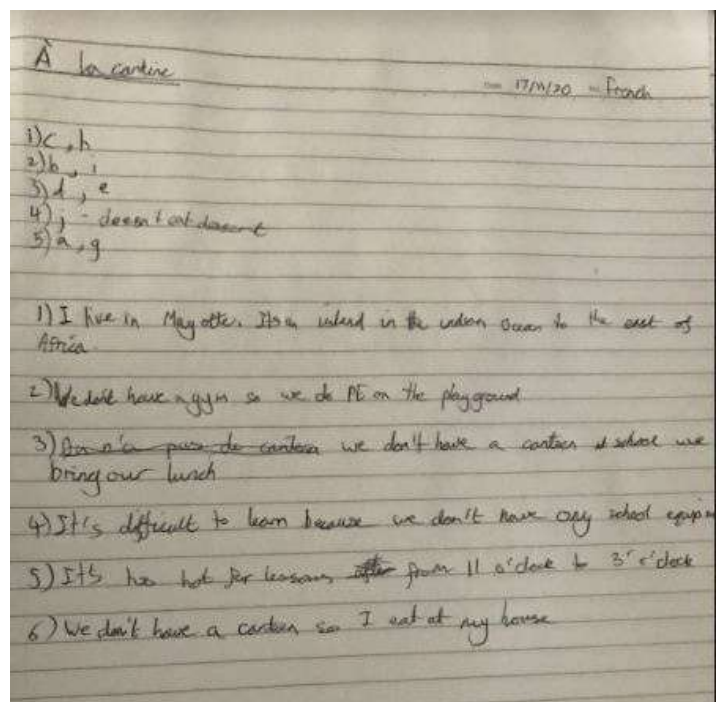 À la cantine
17/11/20 - French
1) c, h
2) b, i
3) d, e
4) j - doesn't eat dessert
5) a, g
1) I live in Mayotte. Its an island in the indian Ocean to the east of
Africa.
2) We don't have a gym so we do PE on the playground
3) On n'a pas de canteen we don't have a canteen at school we
bring our lunch
4) It's difficult to learn because we don't have any school equipm
5) It's too hot for lessons after from 11 o'clock to 3 o'clock
6) We don't have a canteen so I eat at my house